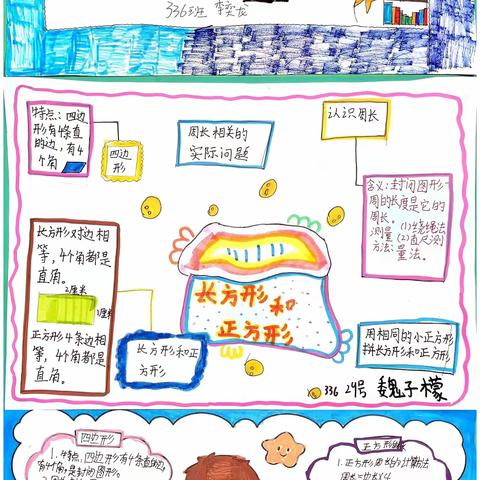 336班 李奕龙
特点：四边
形有4条直
的边，有4
个角
四边
形
周长相关的
实际问题
认识周长
含义：封闭图形一
周的长度是它的
周长。
测量 (1)绕绳法
方法：(2)直尺测
量法。
长方形对边相
等，4个角都是
直角。
2厘米
1厘米
正方形4条边相
等，4个角都是
直角。
长方形和正
方形
长方形
和
正方形
用相同的小正方形
拼长方形和正方形
336 29号 魏子檬
四边形
1. 特点：四边形有4条直的边，
有4个角，是封闭图形。
正方形
1. 正方形周长的计算方法
周长=边长×4